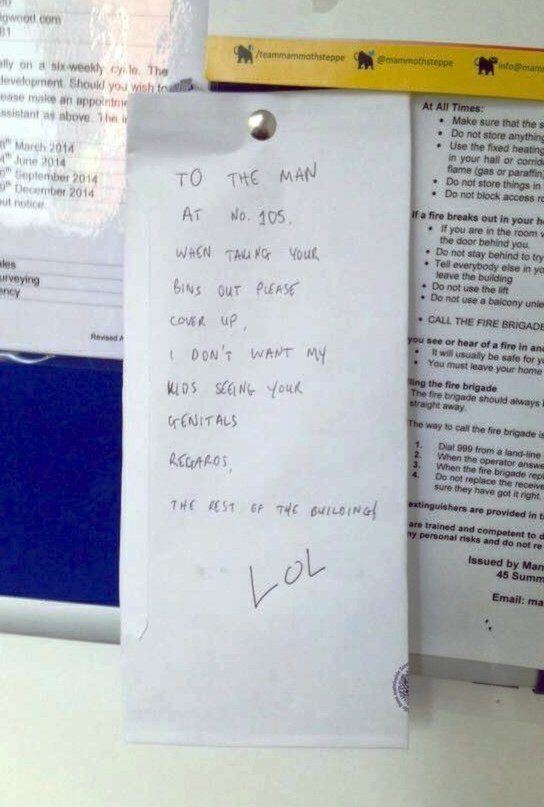 gwood.com
31
lly on a six-weekly cycle. The
development. Should you wish to
ease make an appointme
ssistant as above. The in
March 2014
June 2014
September 2014
December 2014
out notice.
ales
urveying
ency
Revised A
/teammammothsteppe
@mammothsteppe
info@mam
TO THE MAN
AT NO. 105.
WHEN TAKING YOUR
BINS OUT PLEASE
COVER UP,
I DON'T WANT MY
KIDS SEEING YOUR
GENITALS
REGARDS,
THE REST OF THE BUILDING!
LOL
At All Times:
• Make sure that the s
• Do not store anything
• Use the fixed heating
in your hall or corrido
flame (gas or paraffin
• Do not store things in
• Do not block access ro
If a fire breaks out in your h
• If you are in the room w
the door behind you.
• Do not stay behind to try
• Tell everybody else in yo
leave the building
• Do not use the lift
• Do not use a balcony unle
• CALL THE FIRE BRIGADE
you see or hear of a fire in an
• It will usually be safe for yo
• You must leave your home
lling the fire brigade
The fire brigade should always b
straight away.
The way to call the fire brigade is
1. Dial 999 from a land-line
2. When the operator answe
3. When the fire brigade repl
4. Do not replace the receive
sure they have got it right.
extinguishers are provided in t
are trained and competent to d
ny personal risks and do not re
Issued by Man
45 Summ
Email: ma